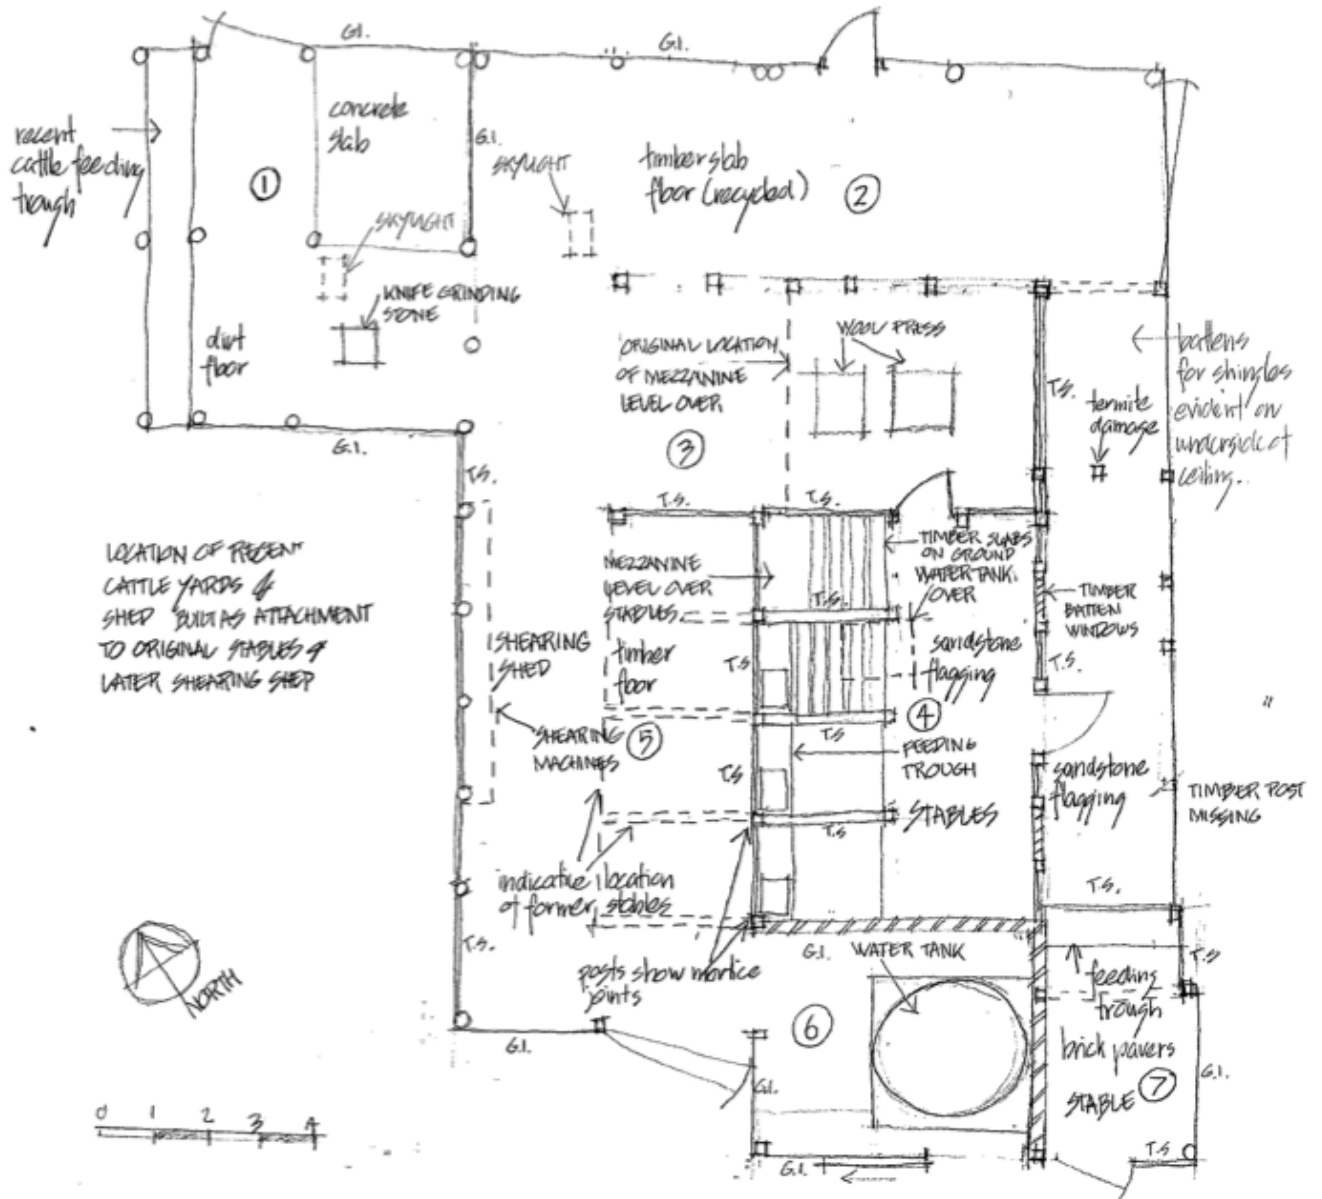 G.I.
G.I.
recent
cattle feeding
trough
concrete
slab
G.I.
1
SKYLIGHT
SKYLIGHT
timber slab
floor (recycled)
2
KNIFE GRINDING
STONE
dirt
floor
ORIGINAL LOCATION
OF MEZZANINE
LEVEL OVER
WOOL PRESS
T.S.
battens
for shingles
evident on
underside of
ceiling..
termite
damage
3
G.I.
T.S.
T.S.
T.S.
LOCATION OF RECENT
CATTLE YARDS &
SHED BUILT AS ATTACHMENT
TO ORIGINAL STABLES &
LATER SHEARING SHED
MEZZANINE
LEVEL OVER
STABLES.
TIMBER SLABS
ON GROUND
WATER TANK.
OVER
TIMBER
BATTEN
WINDOWS
T.S.
SHEARING
SHED
timber
floor
T.S
sandstone
flagging
T.S.
4
SHEARING
MACHINES
5
T.S
FEEDING
TROUGH
T.S
sandstone
flagging
TIMBER POST
MISSING
"
STABLES
T.S
indicative location
of former stables
T.S.
T.S.
posts show mortice
joints
G.I.
WATER TANK
T.S
feeding
trough
NORTH
6
brick pavers
STABLE
7
G.I.
G.I.
G.I.
0 1 2 3 4
T.S
G.I.